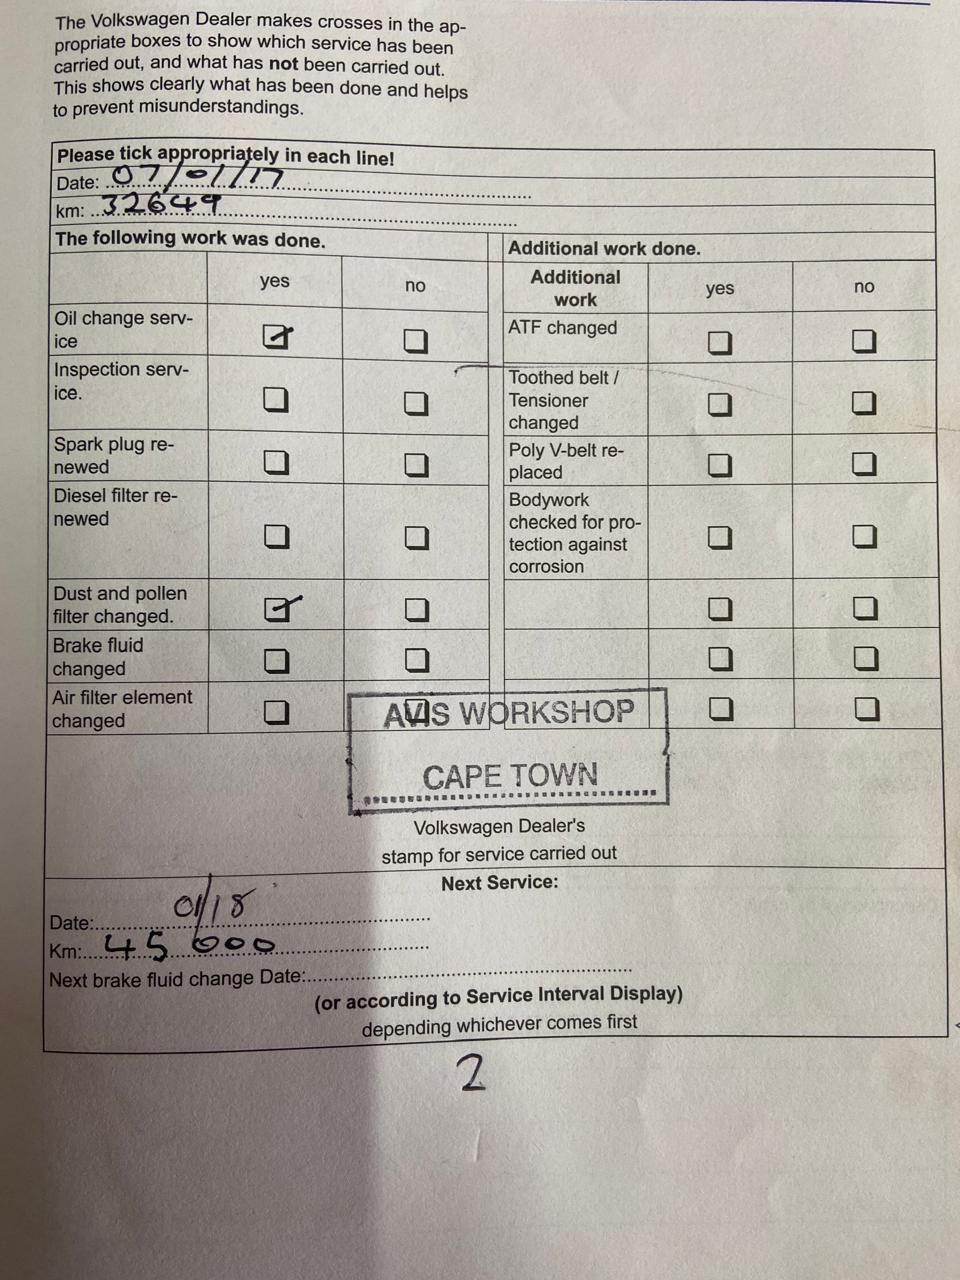 The Volkswagen Dealer makes crosses in the ap-
propriate boxes to show which service has been
carried out, and what has not been carried out.
This shows clearly what has been done and helps
to prevent misunderstandings.
Please tick appropriately in each line!
Date: 07/01/17
km: 32649
The following work was done.
yes
no
Oil change serv-
ice
Inspection serv-
ice.
Spark plug re-
newed
Diesel filter re-
newed
Dust and pollen
filter changed.
Brake fluid
changed
Air filter element
changed
Additional work done.
Additional
work
yes
no
ATF changed
Toothed belt /
Tensioner
changed
Poly V-belt re-
placed
Bodywork
checked for pro-
tection against
corrosion
AVIS WORKSHOP
CAPE TOWN
Volkswagen Dealer's
stamp for service carried out
Next Service:
Date: 01/18
Km: 45 000
Next brake fluid change Date:
(or according to Service Interval Display)
depending whichever comes first
2